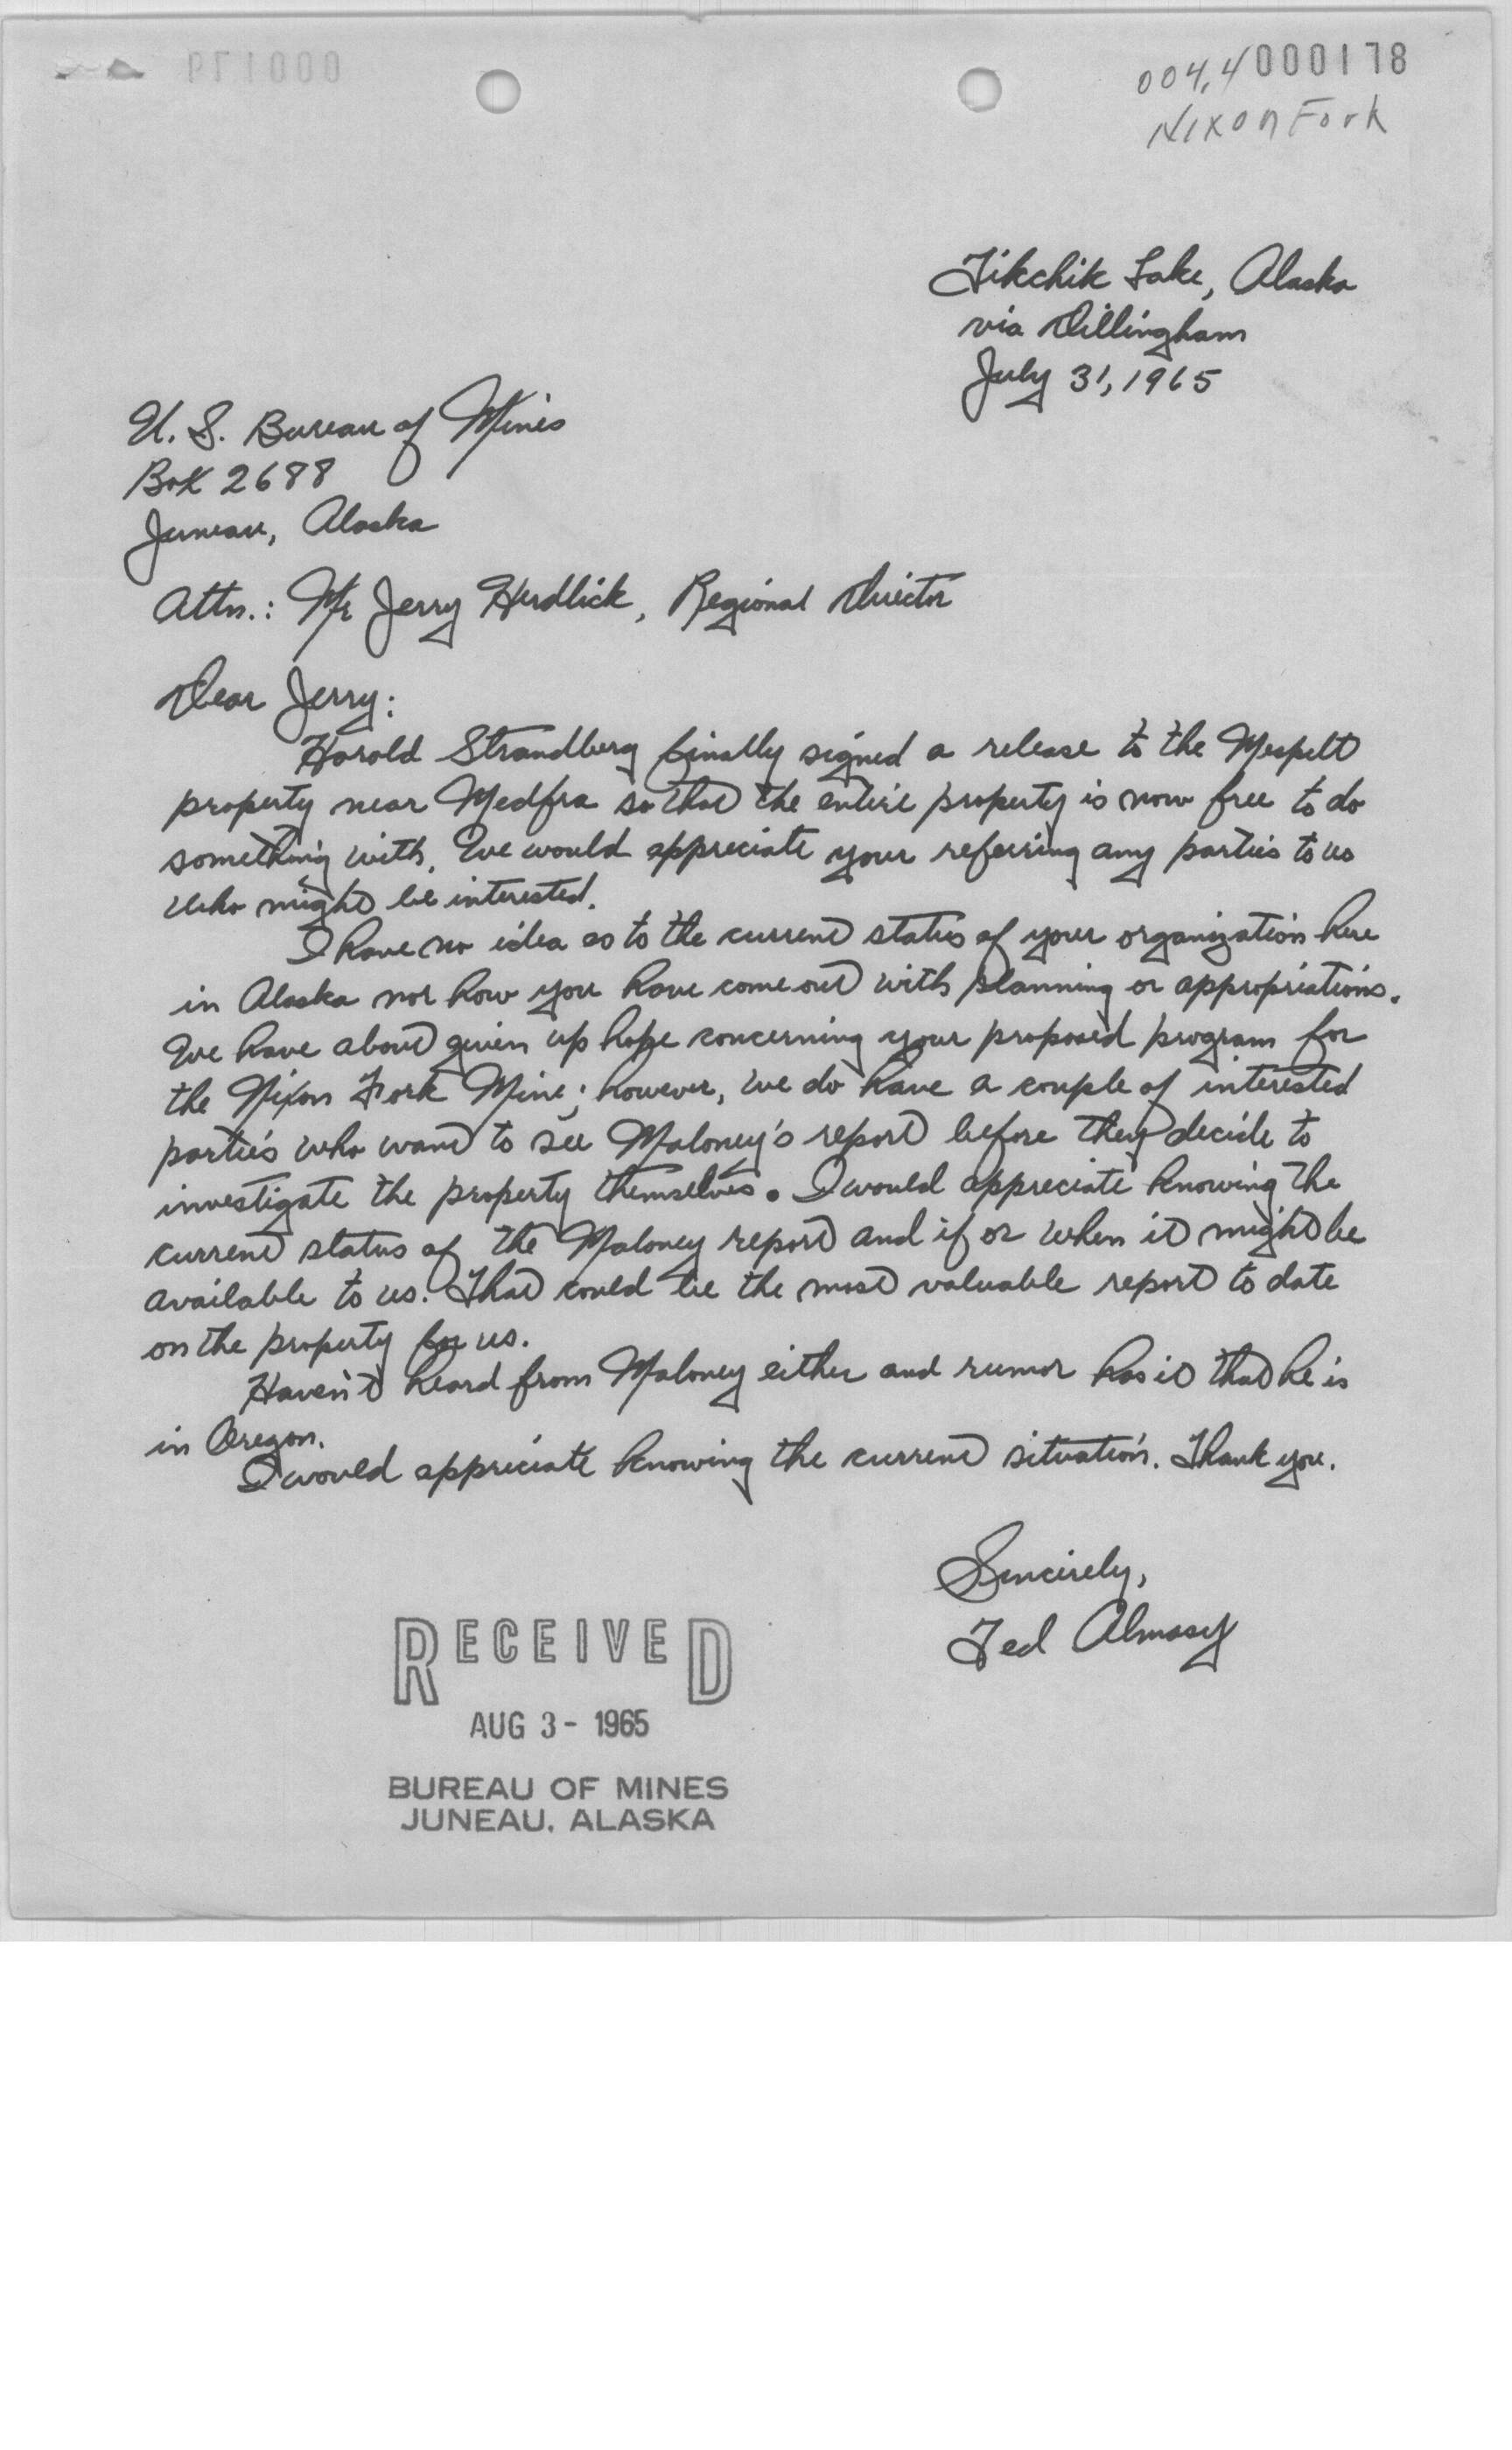 004.4 000178
Nixon Fork
Tikchik Lake, Alaska
via Dillingham
July 31, 1965
U. S. Bureau of Mines
Box 2688
Juneau, Alaska
Attn.: Mr Jerry Herdlick, Regional Director
Dear Jerry:
Harold Strandberg finally signed a release to the Mespelt
property near Medfra so that the entire property is now free to do
something with. We would appreciate your referring any parties to us
who might be interested.
I have no idea as to the current status of your organization here
in Alaska nor how you have come out with planning or appropriations.
We have about given up hope concerning your proposed program for
the Nixon Fork Mine; however, we do have a couple of interested
parties who want to see Maloney's report before they decide to
investigate the property themselves. I would appreciate knowing the
current status of the Maloney report and if or when it might be
available to us. That could be the most valuable report to date
on the property for us.
Haven't heard from Maloney either and rumor has it that he is
in Oregon.
I would appreciate knowing the current situation. Thank you.
Sincerely,
Ted Almasy
RECEIVED
AUG 3 - 1965
BUREAU OF MINES
JUNEAU, ALASKA